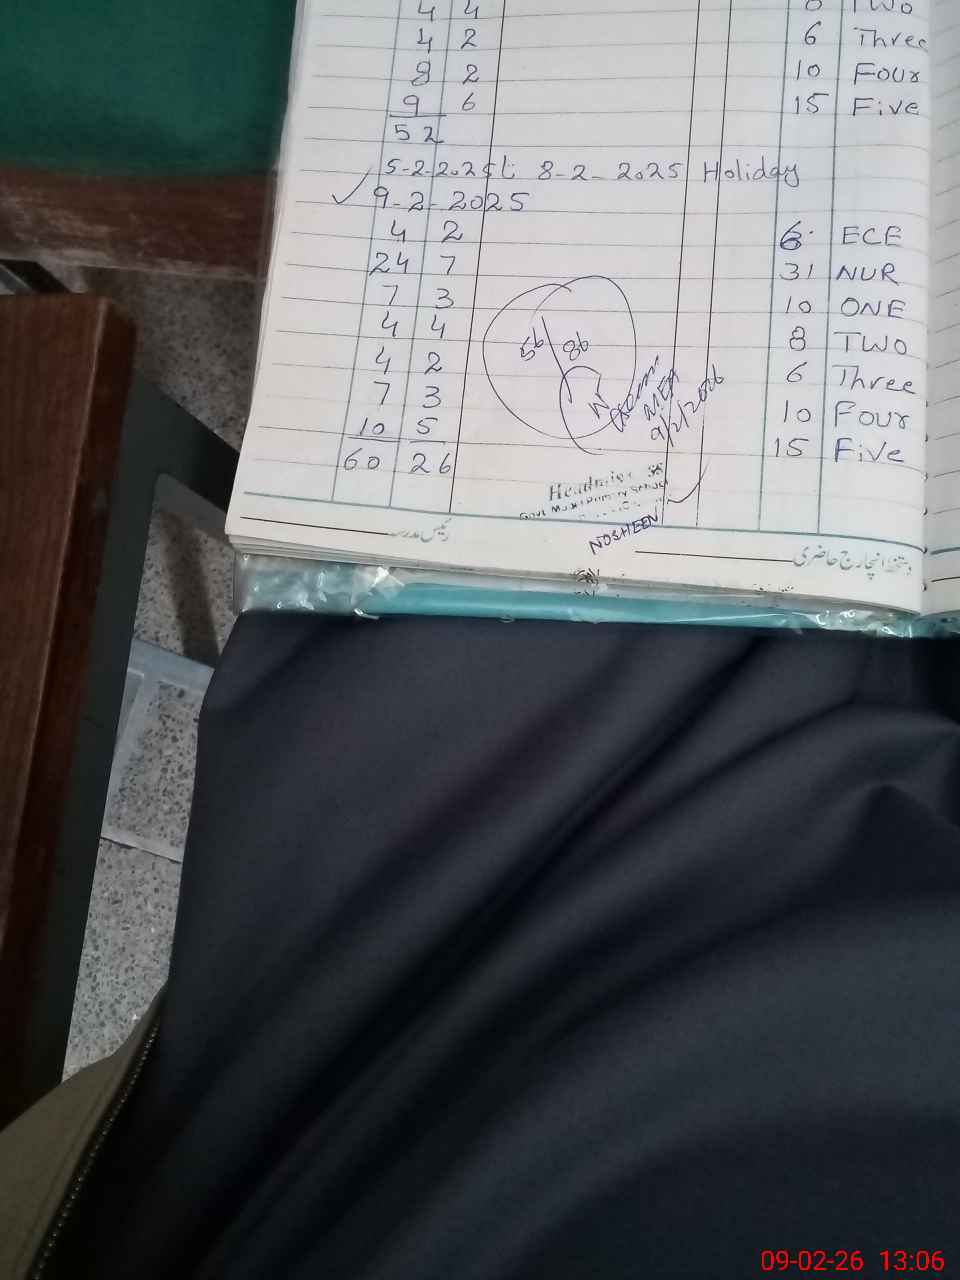 4 4 8 Two
4 2 6 Three
8 2 10 Four
9 6 15 Five
52
5-2-2025 t 8-2-2025 Holiday
9-2-2025
4 2 6 ECE
24 7 31 NUR
7 3 10 ONE
4 4 8 TWO
4 2 6 Three
7 3 10 Four
10 5 15 Five
60 26
56 86
MEA
9/2/2026
Govt
NOSHEEN
رئیس مدرسہ
دستخط انچارج حاضری
09-02-26 13:06